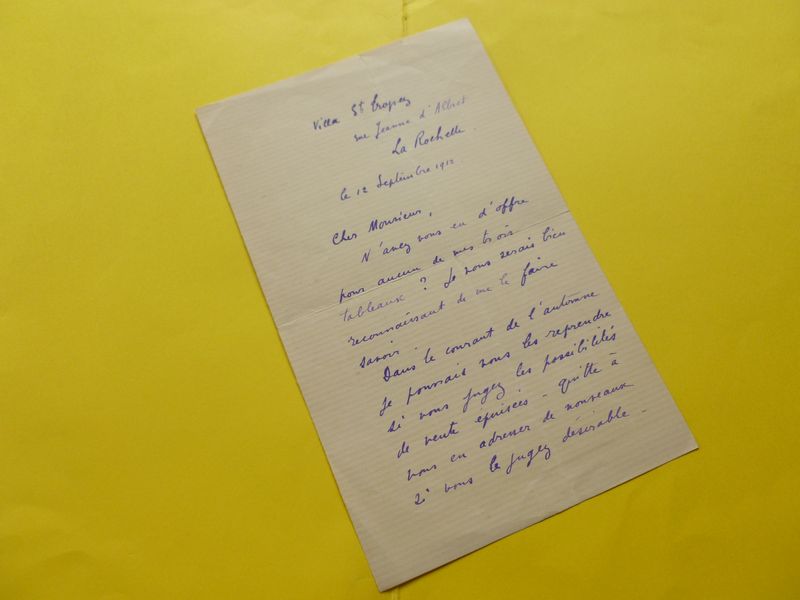 Villa St Tropez
rue Jeanne d'Albret
La Rochelle.
le 12 Septembre 1912.
Cher Monsieur,
N'avez vous eu d'offre
pour aucun de mes trois
tableaux ? Je vous serais bien
reconnaissant de me le faire
savoir.
Dans le courant de l'automne
je pourrais vous les reprendre
si vous jugez les possibilités
de vente épuisées - quitte à
vous en adresser de nouveaux
si vous le jugez désirable -